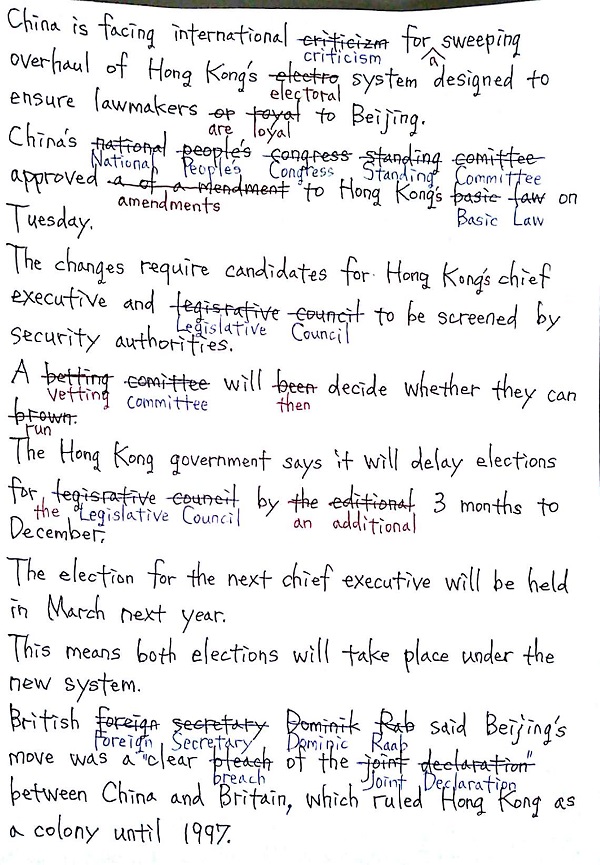 China is facing international criticizm for sweeping
criticism a
overhaul of Hong Kong's electro system designed to
electoral
ensure lawmakers or royal to Beijing.
are loyal
China's national people's congress standing comittee
National People's Congress Standing Committee
approved a of a mendment to Hong Kong's basic law on
amendments Basic Law
Tuesday.
The changes require candidates for Hong Kong's chief
executive and legisrative council to be screened by
Legislative Council
security authorities.
A betting comittee will been decide whether they can
vetting committee then
brown.
run
The Hong Kong government says it will delay elections
for legisrative council by the editional 3 months to
the Legislative Council an additional
December.
The election for the next chief executive will be held
in March next year.
This means both elections will take place under the
new system.
British foreign secretary Dominik Rab said Beijing's
Foreign Secretary Dominic Raab
move was a "clear pleach of the joint declaration"
breach Joint Declaration
between China and Britain, which ruled Hong Kong as
a colony until 1997.